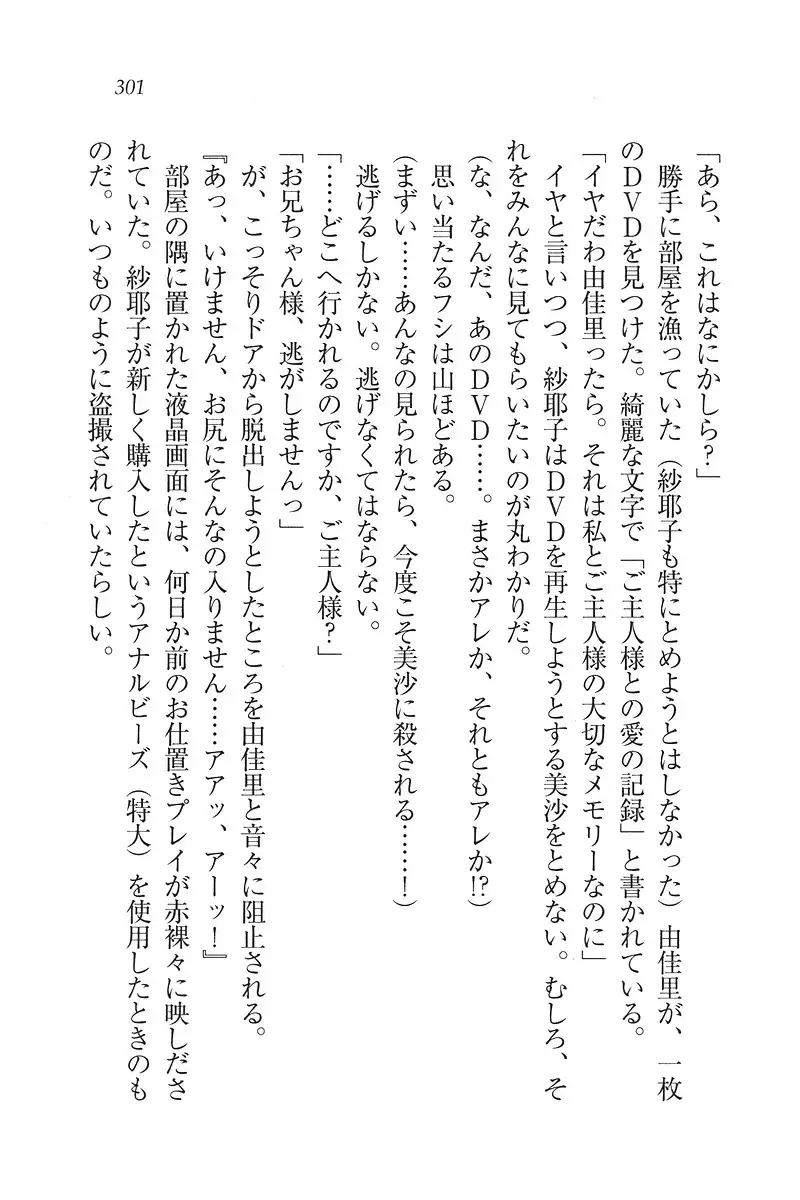 301
「あら、これはなにかしら？」
勝手に部屋を漁っていた（紗耶子も特にとめようとはしなかった）由佳里が、一枚
のＤＶＤを見つけた。綺麗な文字で「ご主人様との愛の記録」と書かれている。
「イヤだわ由佳里ったら。それは私とご主人様の大切なメモリーなのに」
イヤと言いつつ、紗耶子はＤＶＤを再生しようとする美沙をとめない。むしろ、そ
れをみんなに見てもらいたいのが丸わかりだ。
（な、なんだ、あのＤＶＤ……。まさかアレか、それともアレか!?）
思い当たるフシは山ほどある。
（まずい……あんなの見られたら、今度こそ美沙に殺される……！）
逃げるしかない。逃げなくてはならない。
「……どこへ行かれるのですか、ご主人様？」
「お兄ちゃん様、逃がしませんっ」
が、こっそりドアから脱出しようとしたところを由佳里と音々に阻止される。
『あっ、いけません、お尻にそんなの入りません……アアッ、アーッ！』
部屋の隅に置かれた液晶画面には、何日か前のお仕置きプレイが赤裸々に映しださ
れていた。紗耶子が新しく購入したというアナルビーズ（特大）を使用したときのも
のだ。いつものように盗撮されていたらしい。